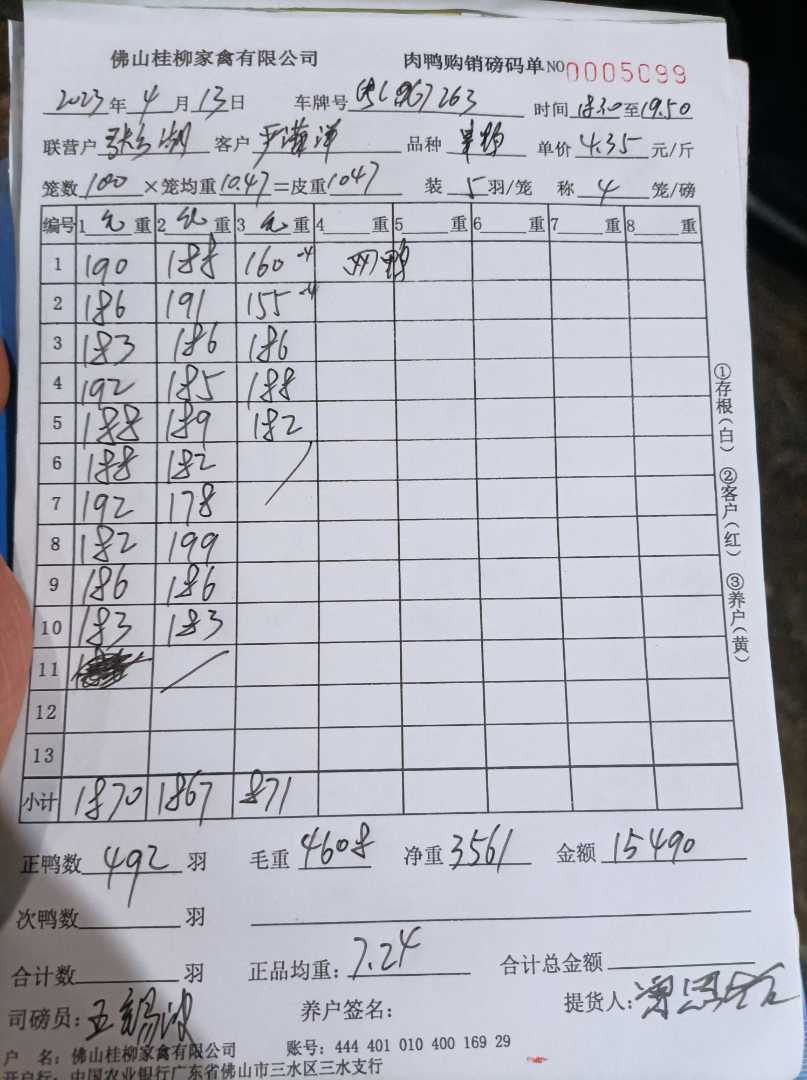 佛山桂柳家禽有限公司 肉鸭购销磅码单 NO 0005099
2023年 4 月 13 日 车牌号 时间 18.30 至 19.50
联营户 客户 品种 单价 4.35 元/斤
笼数 100 ×笼均重 10.47 =皮重 1047 装 5 羽/笼 称 4 笼/磅
编号 1 重 2 重 3 重 4 重 5 重 6 重 7 重 8 重
1 190 188 160 -4
2 186 191 155 -4
3 183 186 186
4 192 185 188
5 188 189 182
6 188 182
7 192 178
8 182 199
9 186 186
10 183 183
11
12
13
小计 1870 1867 871
正鸭数 492 羽 毛重 4608 净重 3561 金额 15490
次鸭数 羽
合计数 羽 正品均重: 7.24 合计总金额
司磅员: 养户签名: 提货人:
户 名: 佛山桂柳家禽有限公司 账号: 444 401 010 400 169 29
开户行: 中国农业银行广东省佛山市三水区三水支行
①存根(白) ②客户(红) ③养户(黄)